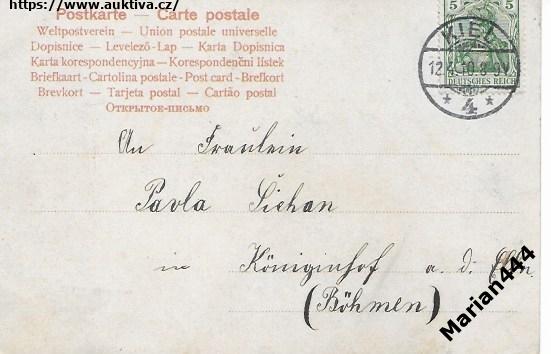 https://www.auktiva.cz/
Postkarte — Carte postale
Weltpostverein — Union postale universelle
Dopisnice — Levelező-Lap — Karta Dopisnica
Karta korespondencyjna — Korespondenční lístek
Briefkaart - Cartolina postale - Post card - Brefkort
Brevkort — Tarjeta postal — Cartão postal
Открытое-письмо
5 5
KIEL
DEUTSCHES REICH
* 4 *
An Fräulein
Pavla Šichan
in Königinhof a. d. Elbe
(Böhmen)
Marian444